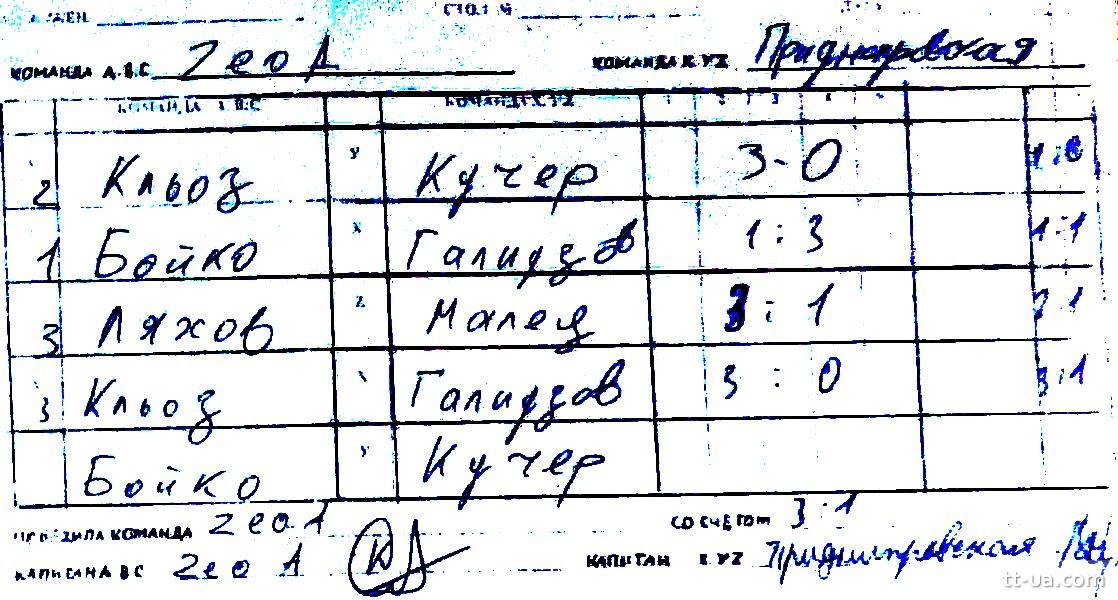 СТОЛ №
КОМАНДА А.В.С Zeo 1 КОМАНДА X Y Z Приднепровская
КОМАНДА А.В.С КОМАНДА X Y Z 1 2 3 4 5
2 Кльоз У Кучер 3-0 1:0
1 Бойко X Галидзов 1:3 1:1
3 Ляхов Z Малец 3:1 2:1
3 Кльоз Галидзов 3:0 3:1
Бойко У Кучер
ПОБЕДИЛА КОМАНДА Zeo 1 СО СЧЕТОМ 3:1
КАПИТАН А В С Zeo 1 КАПИТАН X Y Z
tt-ua.com